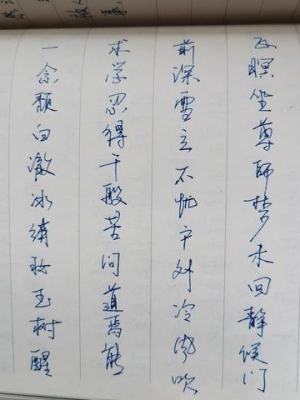 瞑坐尊师梦未回静候门
前深雪立不怕户外冷风吹
求学忍得千般苦问道焉能
一念颓白澈冰绡妆玉树醒